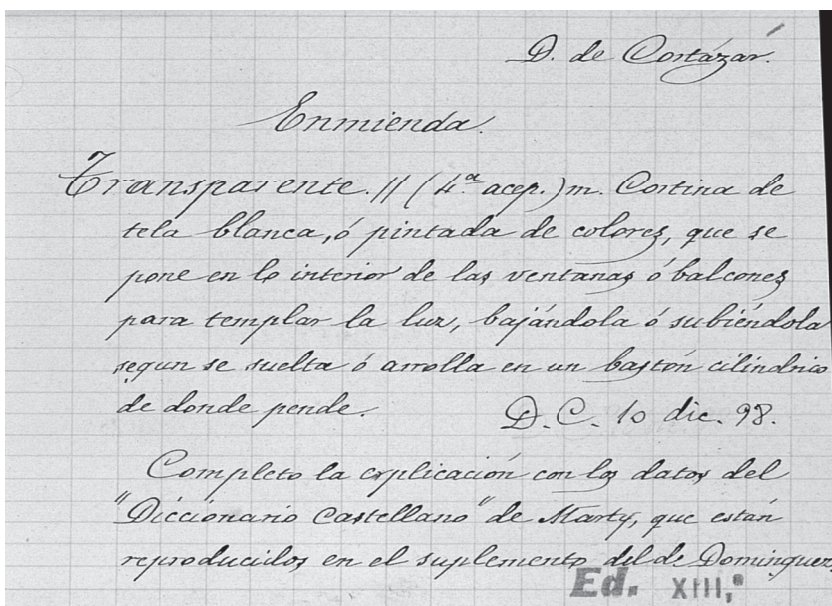 D. de Cortázar.
Enmienda.
Transparente. || (4.ª acep.) m. Cortina de
tela blanca, ó pintada de colores, que se
pone en lo interior de las ventanas ó balcones
para templar la luz, bajándola ó subiéndola
segun se suelta ó arrolla en un bastón cilindrico
de donde pende. D. C. 10 dic. 98.
Completo la explicación con los datos del
"Diccionario Castellano" de Marty, que están
reproducidos en el suplemento del de Dominguez,
Ed. XIII,ª